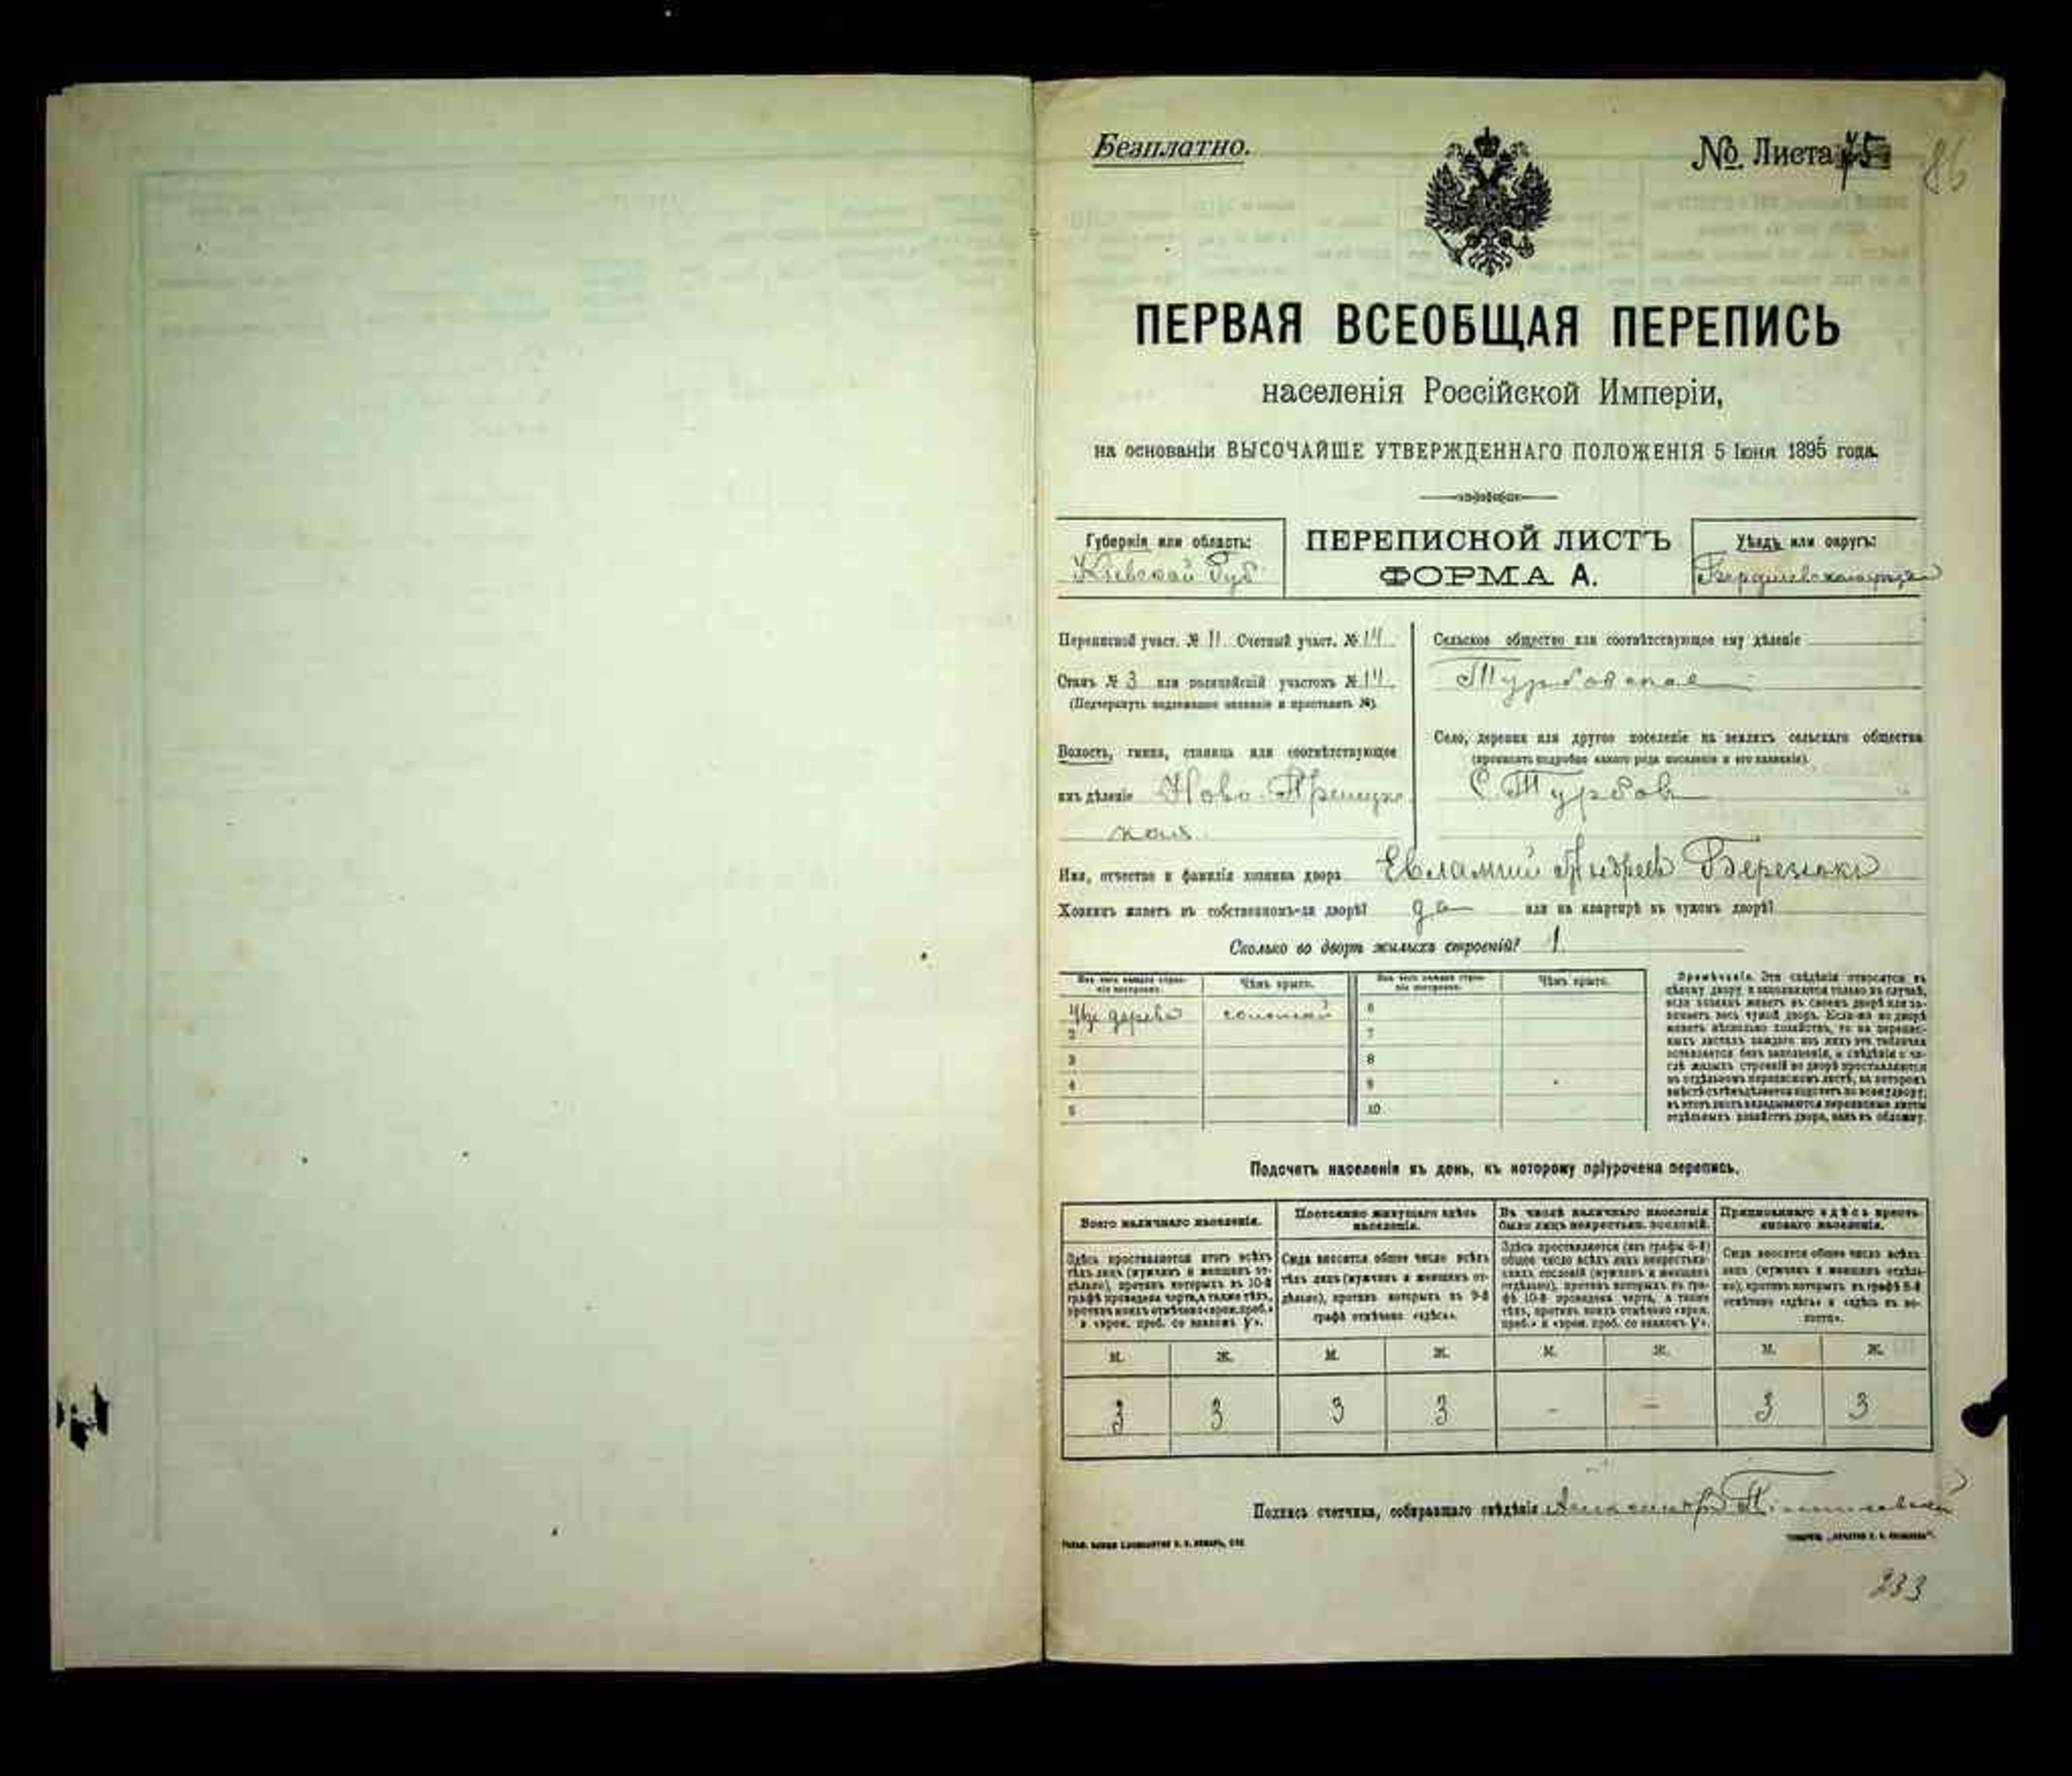 Безплатно.
№ Листа 75
86
ПЕРВАЯ ВСЕОБЩАЯ ПЕРЕПИСЬ
населенія Россійской Имперіи,
на основаніи ВЫСОЧАЙШЕ УТВЕРЖДЕННАГО ПОЛОЖЕНІЯ 5 Іюня 1895 года.
Губернія или область:
Кіевской Губ
ПЕРЕПИСНОЙ ЛИСТЪ
ФОРМА А.
Уѣздъ или округъ:
Переписной участ. № 11 Счетный участ. № 14
Станъ № 3 или полицейскій участокъ № 14.
(Подчеркнуть надлежащее названіе и проставить №).
Волость, гмина, станица или соотвѣтствующее
имъ дѣленіе Ново-
Сельское общество или соотвѣтствующее ему дѣленіе
Турбовское
Село, деревня или другое поселеніе на земляхъ сельскаго общества
(прописать подробно какого рода поселеніе и его названіе).
С. Турбов
Имя, отчество и фамилія хозяина двора Евлампий Андреев
Хозяинъ живетъ въ собственномъ-ли дворѣ? да или на квартирѣ въ чужомъ дворѣ?
Сколько во дворѣ жилыхъ строеній? 1
Изъ чего каждое строеніе построено.
Чѣмъ крыто.
Изъ чего каждое строеніе построено.
Чѣмъ крыто.
Из дерева соломой 6
2 7
3 8
4 9
5 10
Примѣчаніе. Эти свѣдѣнія относятся къ
цѣлому двору и заполняются только въ случаѣ,
если хозяинъ живетъ въ своемъ дворѣ или за-
нимаетъ весь чужой дворъ. Если-же во дворѣ
живетъ нѣсколько хозяйствъ, то на перепис-
ныхъ листахъ каждаго изъ нихъ эта табличка
оставляется безъ заполненія, а свѣдѣнія о чи-
слѣ жилыхъ строеній во дворѣ проставляются
на отдѣльномъ переписномъ листѣ, на которомъ
вмѣстѣ съ тѣмъ дѣлается подсчетъ по всему двору;
въ этотъ листъ вкладываются переписные листы
отдѣльныхъ хозяйствъ двора, какъ въ обложку.
Подсчетъ населенія въ день, къ которому пріурочена перепись.
Всего наличнаго населенія.
Постоянно живущаго здѣсь населенія.
Въ числѣ наличнаго населенія было лицъ некрестьян. сословій.
Приписаннаго здѣсь крестьянскаго населенія.
Здѣсь проставляется итогъ всѣхъ
тѣхъ лицъ (мужчинъ и женщинъ от-
дѣльно), противъ которыхъ въ 10-й
графѣ проведена черта, а также тѣхъ,
противъ коихъ отмѣчено «врем. преб.»
и «врем. преб. со знакомъ V».
Сюда вносится общее число всѣхъ
тѣхъ лицъ (мужчинъ и женщинъ от-
дѣльно), противъ которыхъ въ 9-й
графѣ отмѣчено «здѣсь».
Здѣсь проставляется (изъ графы 4-й)
общее число всѣхъ лицъ некрестьян-
скихъ сословій (мужчинъ и женщинъ
отдѣльно), противъ которыхъ въ гра-
фѣ 10-й проведена черта, а также
тѣхъ, противъ коихъ отмѣчено «врем.
преб.» и «врем. преб. со знакомъ V».
Сюда вносится общее число всѣхъ
лицъ (мужчинъ и женщинъ отдѣль-
но), противъ которыхъ въ графѣ 8-й
отмѣчено «здѣсь» и «здѣсь въ во-
лости».
М. Ж. М. Ж. М. Ж. М. Ж.
3 3 3 3 - - 3 3
Подпись счетчика, собиравшаго свѣдѣнія
233